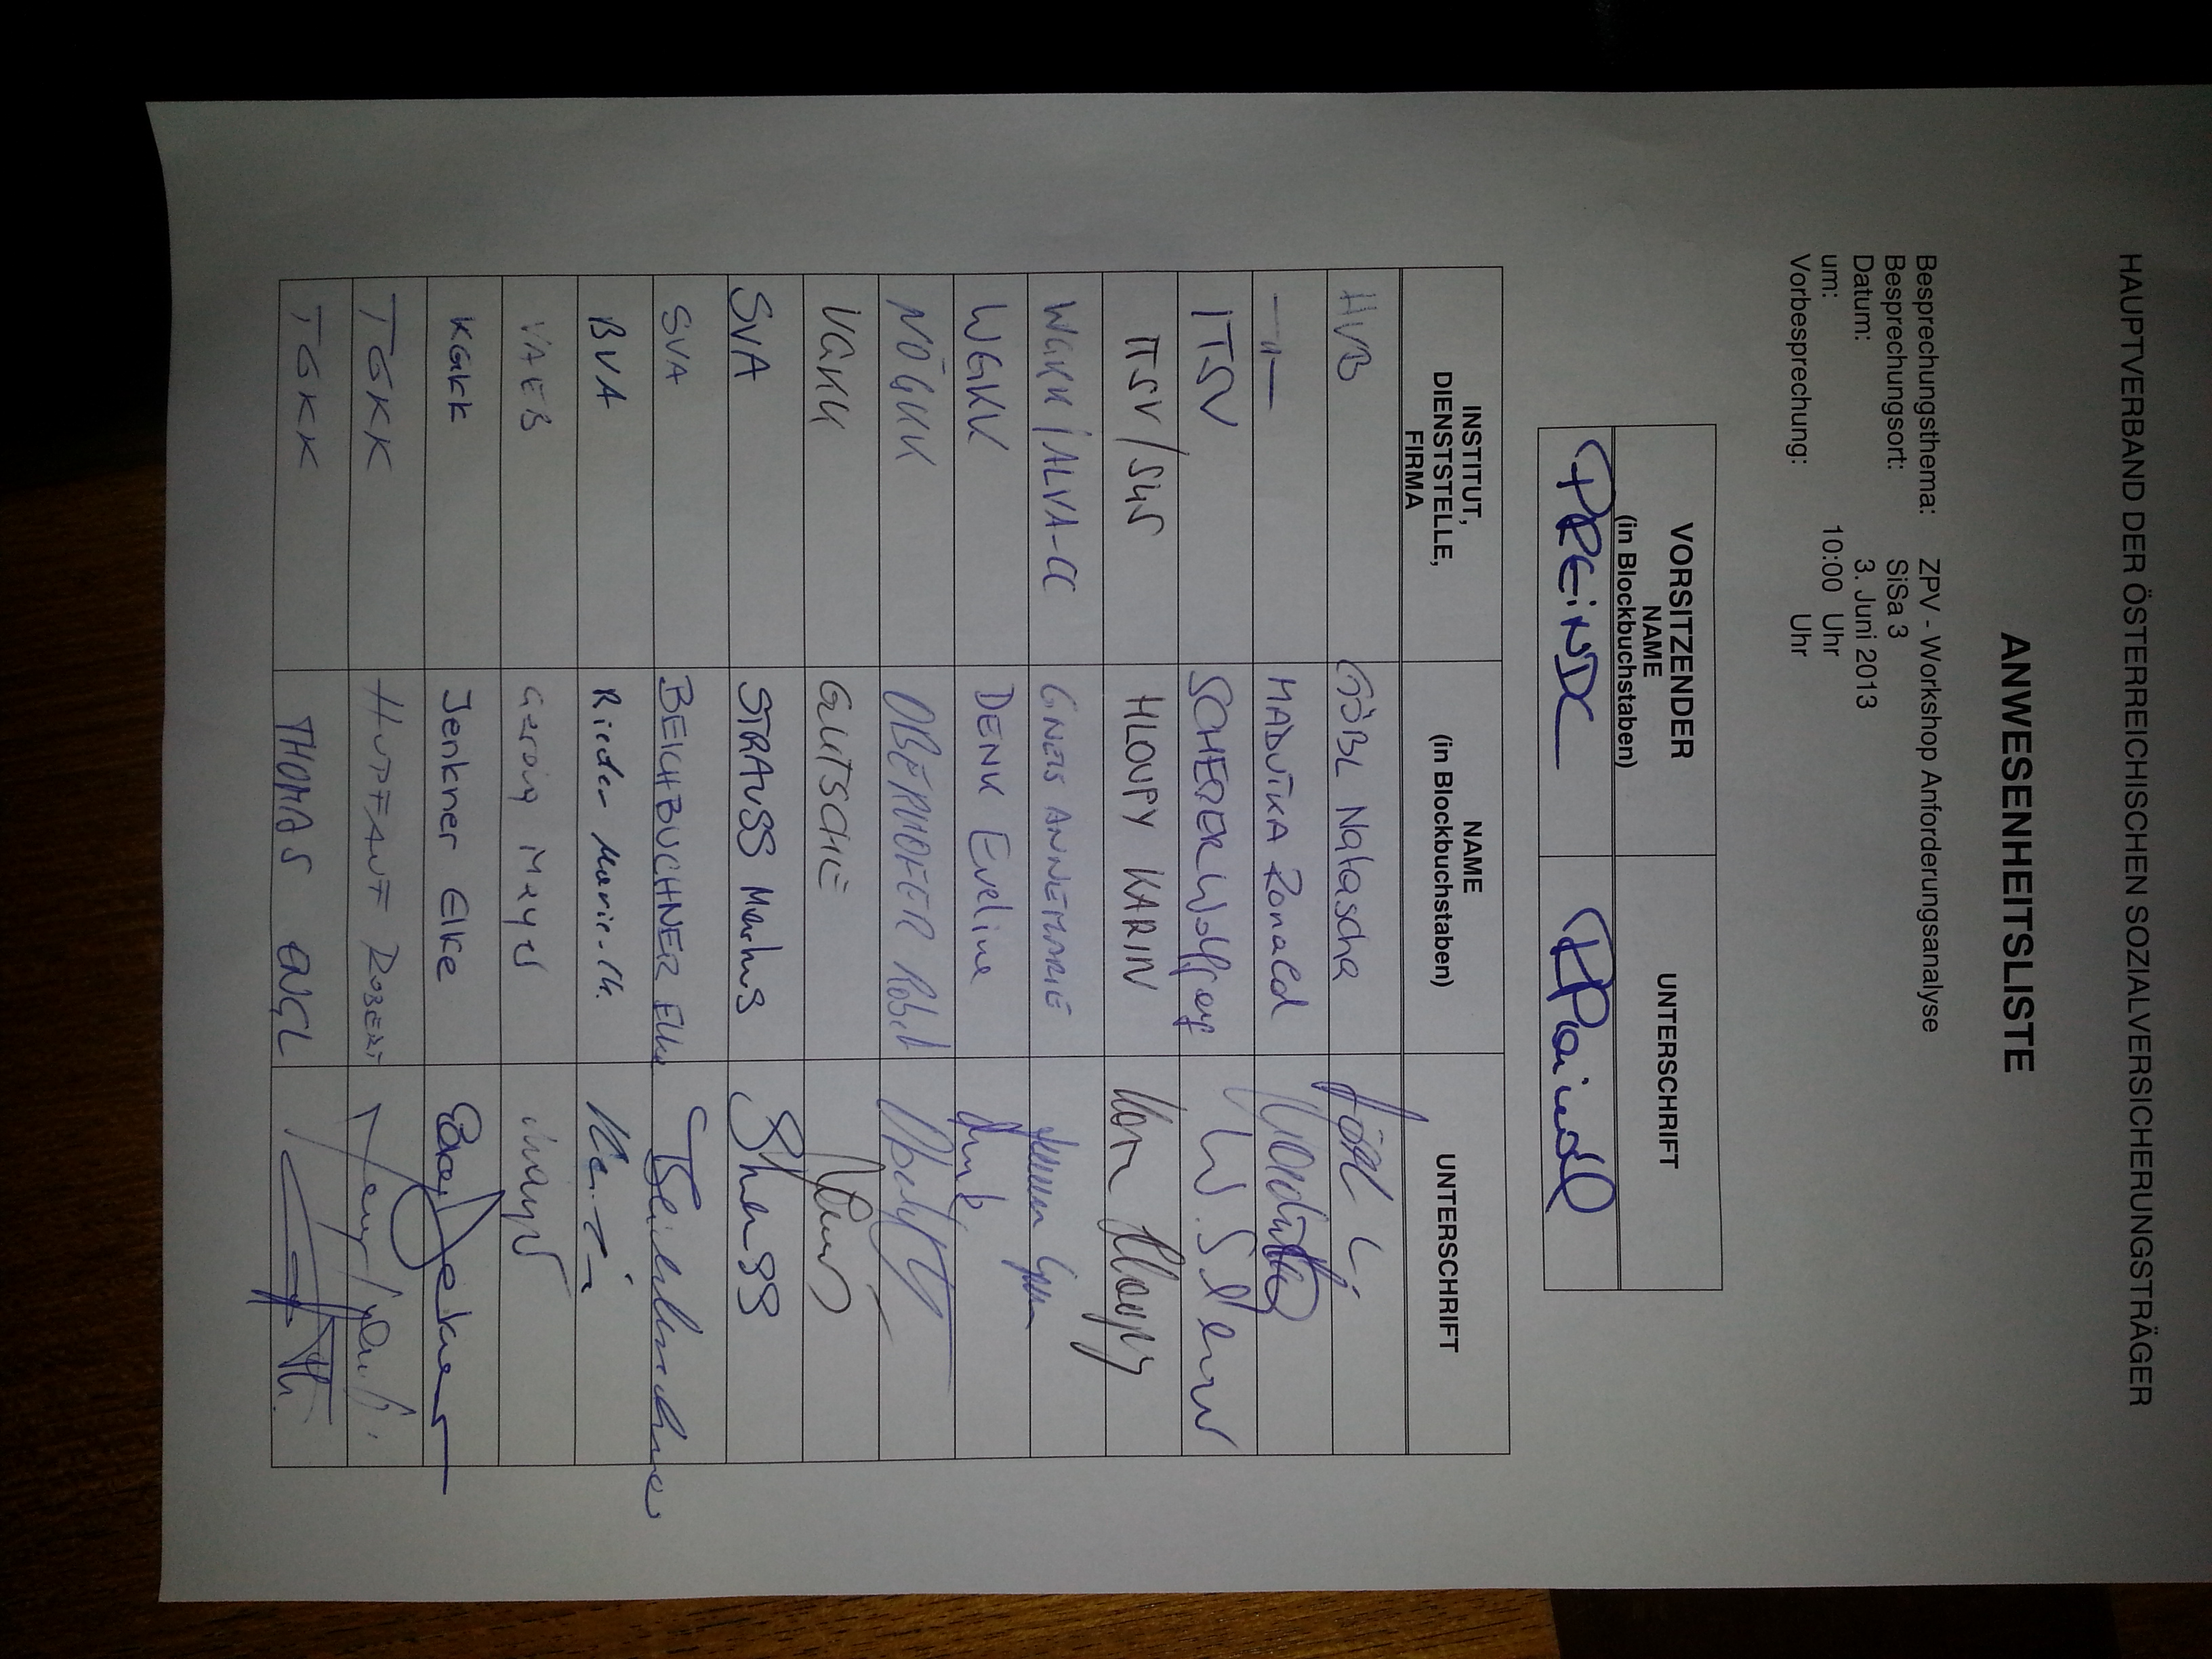 HAUPTVERBAND DER ÖSTERREICHISCHEN SOZIALVERSICHERUNGSTRÄGER
ANWESENHEITSLISTE
Besprechungsthema: ZPV - Workshop Anforderungsanalyse
Besprechungsort: SiSa 3
Datum: 3. Juni 2013
um: 10:00 Uhr
Vorbesprechung: Uhr
VORSITZENDER
NAME
(in Blockbuchstaben)
UNTERSCHRIFT
PREINDL
Preindl
INSTITUT,
DIENSTSTELLE,
FIRMA
NAME
(in Blockbuchstaben)
UNTERSCHRIFT
HVB GÖBL Natascha
-"- MADUTKA Ronald
ITSV SCHERER Wolfgang
ITSV/SVS HLOUPY KARIN
WGKK/ALVA-CC GNEIS ANNEMARIE
WGKK DENK Eveline
NÖGKK OBERHOFER Robert
VGKK GUTSCHE
SVA STRAUSS Markus Strauss
SVA BEICHBUCHNER Elke
BVA Rieder Marie-Ch.
VAEB Gerwig Mayer
KGKK Jenkner Elke
TGKK HUPFAUF ROBERT
TGKK THOMAS ENGL